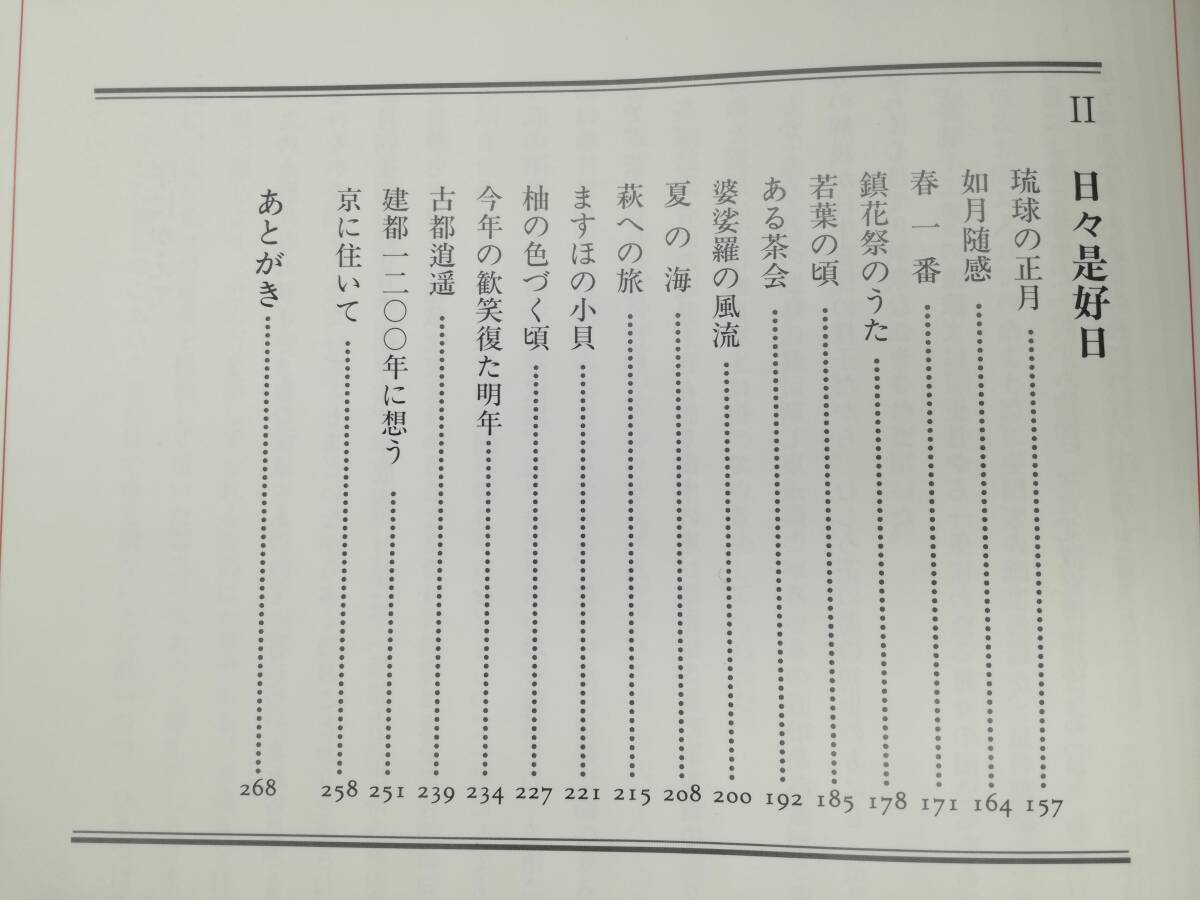 II 日々是好日
琉球の正月 157
如月随感 164
春一番 171
鎮花祭のうた 178
若葉の頃 185
ある茶会 192
婆娑羅の風流 200
夏の海 208
萩への旅 215
ますほの小貝 221
柚の色づく頃 227
今年の歓笑復た明年 234
古都逍遥 239
建都一二〇〇年に想う 251
京に住いて 258
あとがき 268